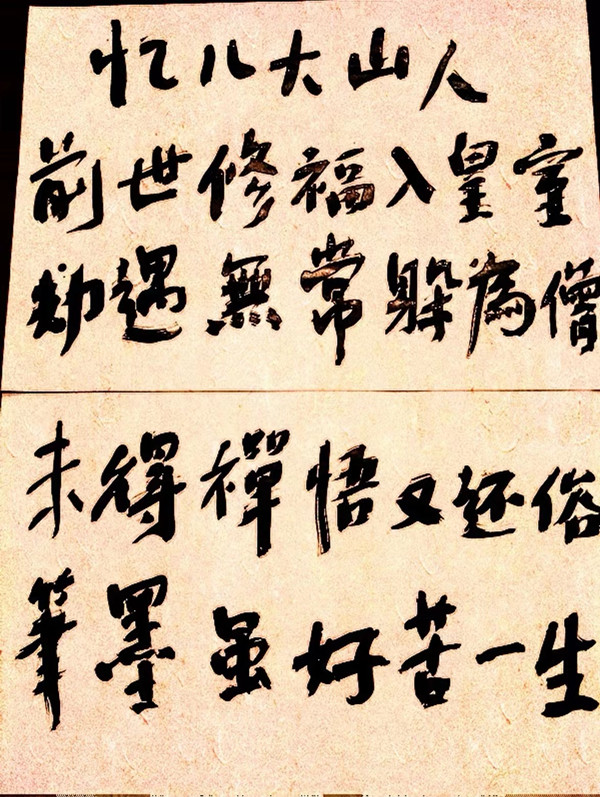 忆八大山人
前世修福入皇室
劫遇無常躲為僧
未得禪悟又还俗
筆墨虽好苦一生